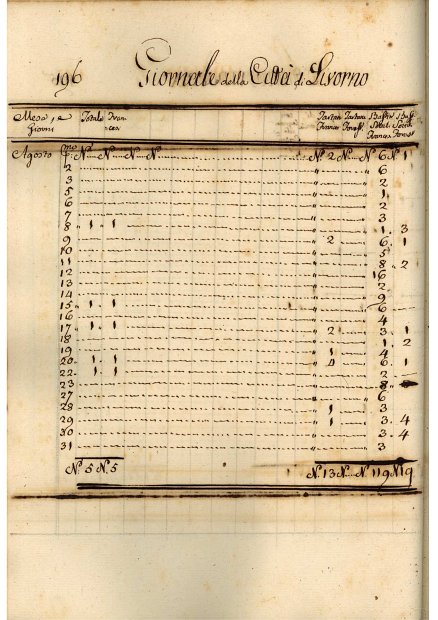 196 Giornale della Città di Livorno
Mese, e Totale Fran
Giorni cea
Agosto N. N. N. N. N. 2 N. N. 6 N. 1
2 6
3 2
5 1
6 2
7 3
8 1 1 1 3
9 2 6 1
10 5
11 8 2
12 16
13 2
14 9
15 1 1 6
16 4
17 1 1 2 3 1
18 1 2
19 1 4
20 1 1 6 1
22 1 1 2
23 8
27 6
28 1 3
29 1 3 4
30 3 4
31 3
N. 5 N. 5 N. 13 N. N. 119 N. 19